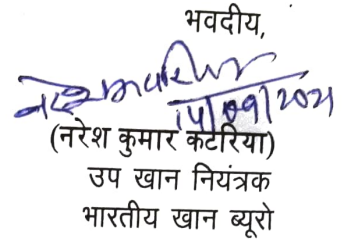 भवदीय,
14/09/2021
(नरेश कुमार कटारिया)
उप खान नियंत्रक
भारतीय खान ब्यूरो